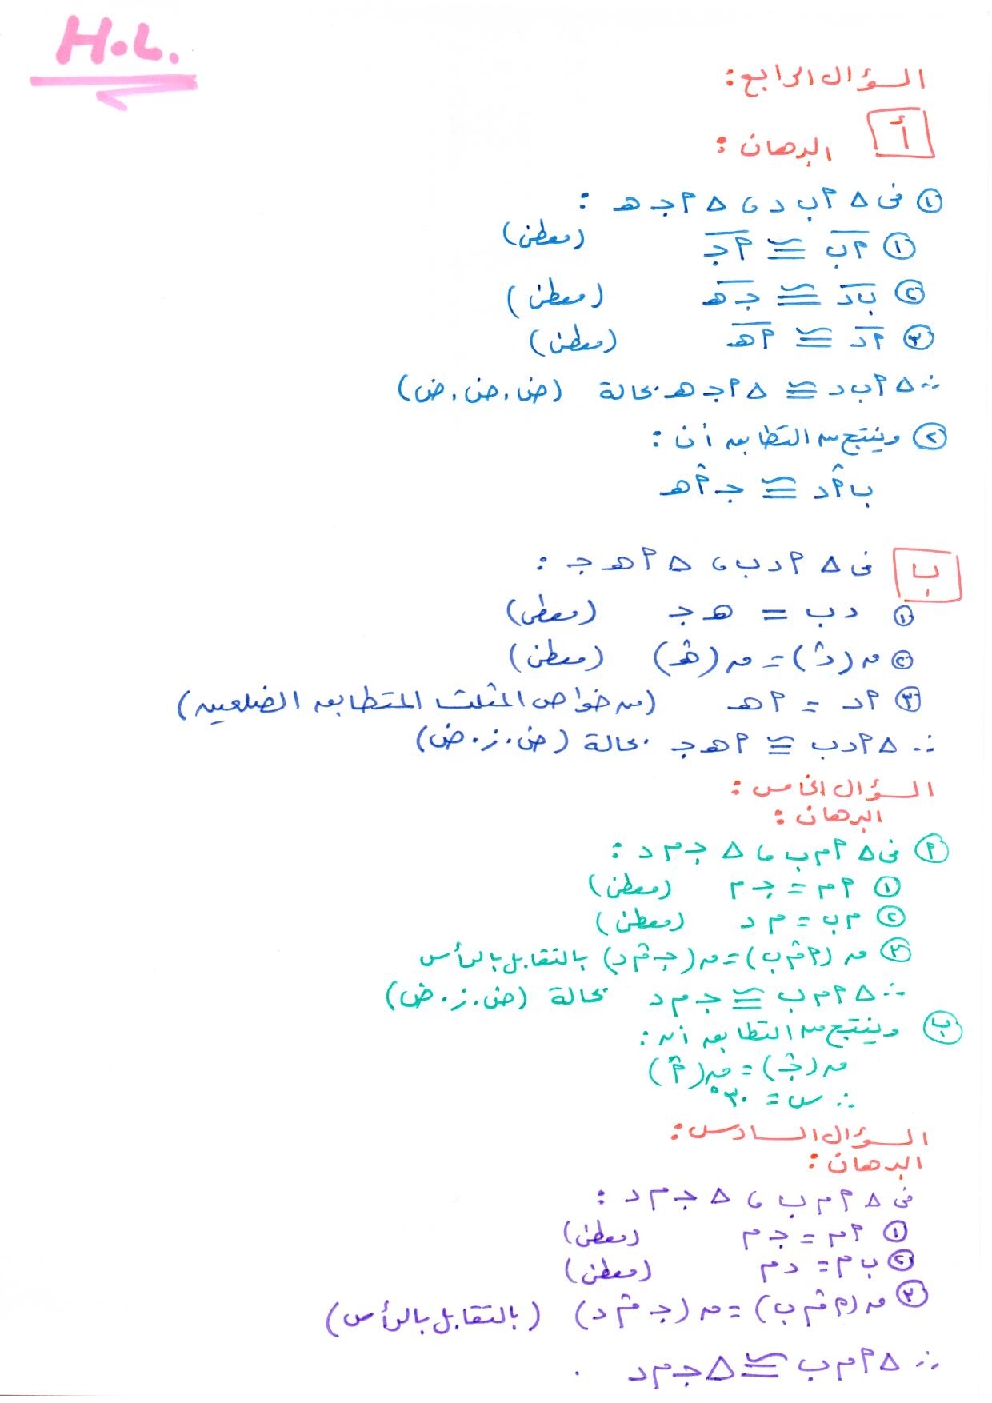 H.L.
السؤال الرابع:
أ البرهان:
① فى △ ٩ ب د ، △ ٩ جـ هـ :
① ٩ب ≅ ٩جـ (معطى)
② بد ≅ جـهـ (معطى)
③ ٩د ≅ ٩هـ (معطى)
∴ △ ٩ ب د ≅ △ ٩ جـ هـ بحالة (ض.ض.ض)
② وينتج من التطابق أن:
ب٩̂د ≅ جـ٩̂هـ
ب فى △ ٩ د ب ، △ ٩ هـ جـ :
① د ب = هـ جـ (معطى)
② ق(د̂) = ق(هـ̂) (معطى)
③ ٩د = ٩هـ (من خواص المثلث المتطابق الضلعين)
∴ △ ٩ د ب ≅ ٩ هـ جـ بحالة (ض.ز.ض)
السؤال الخامس:
البرهان:
٩ فى △ ٩ م ب ، △ جـ م د :
① ٩م = جـ م (معطى)
② م ب = م د (معطى)
③ ق(٩م̂ب) = ق(جـم̂د) بالتقابل بالرأس
∴ △ ٩ م ب ≅ جـ م د بحالة (ض.ز.ض)
ب وينتج من التطابق أن:
ق(جـ̂) = ق(٩̂)
∴ س = ٣٠°
السؤال السادس:
البرهان:
فى △ ٩ م ب ، △ جـ م د :
① ٩م = جـ م (معطى)
② ب م = د م (معطى)
③ ق(٩م̂ب) = ق(جـم̂د) (بالتقابل بالرأس)
∴ △ ٩ م ب ≅ △ جـ م د .